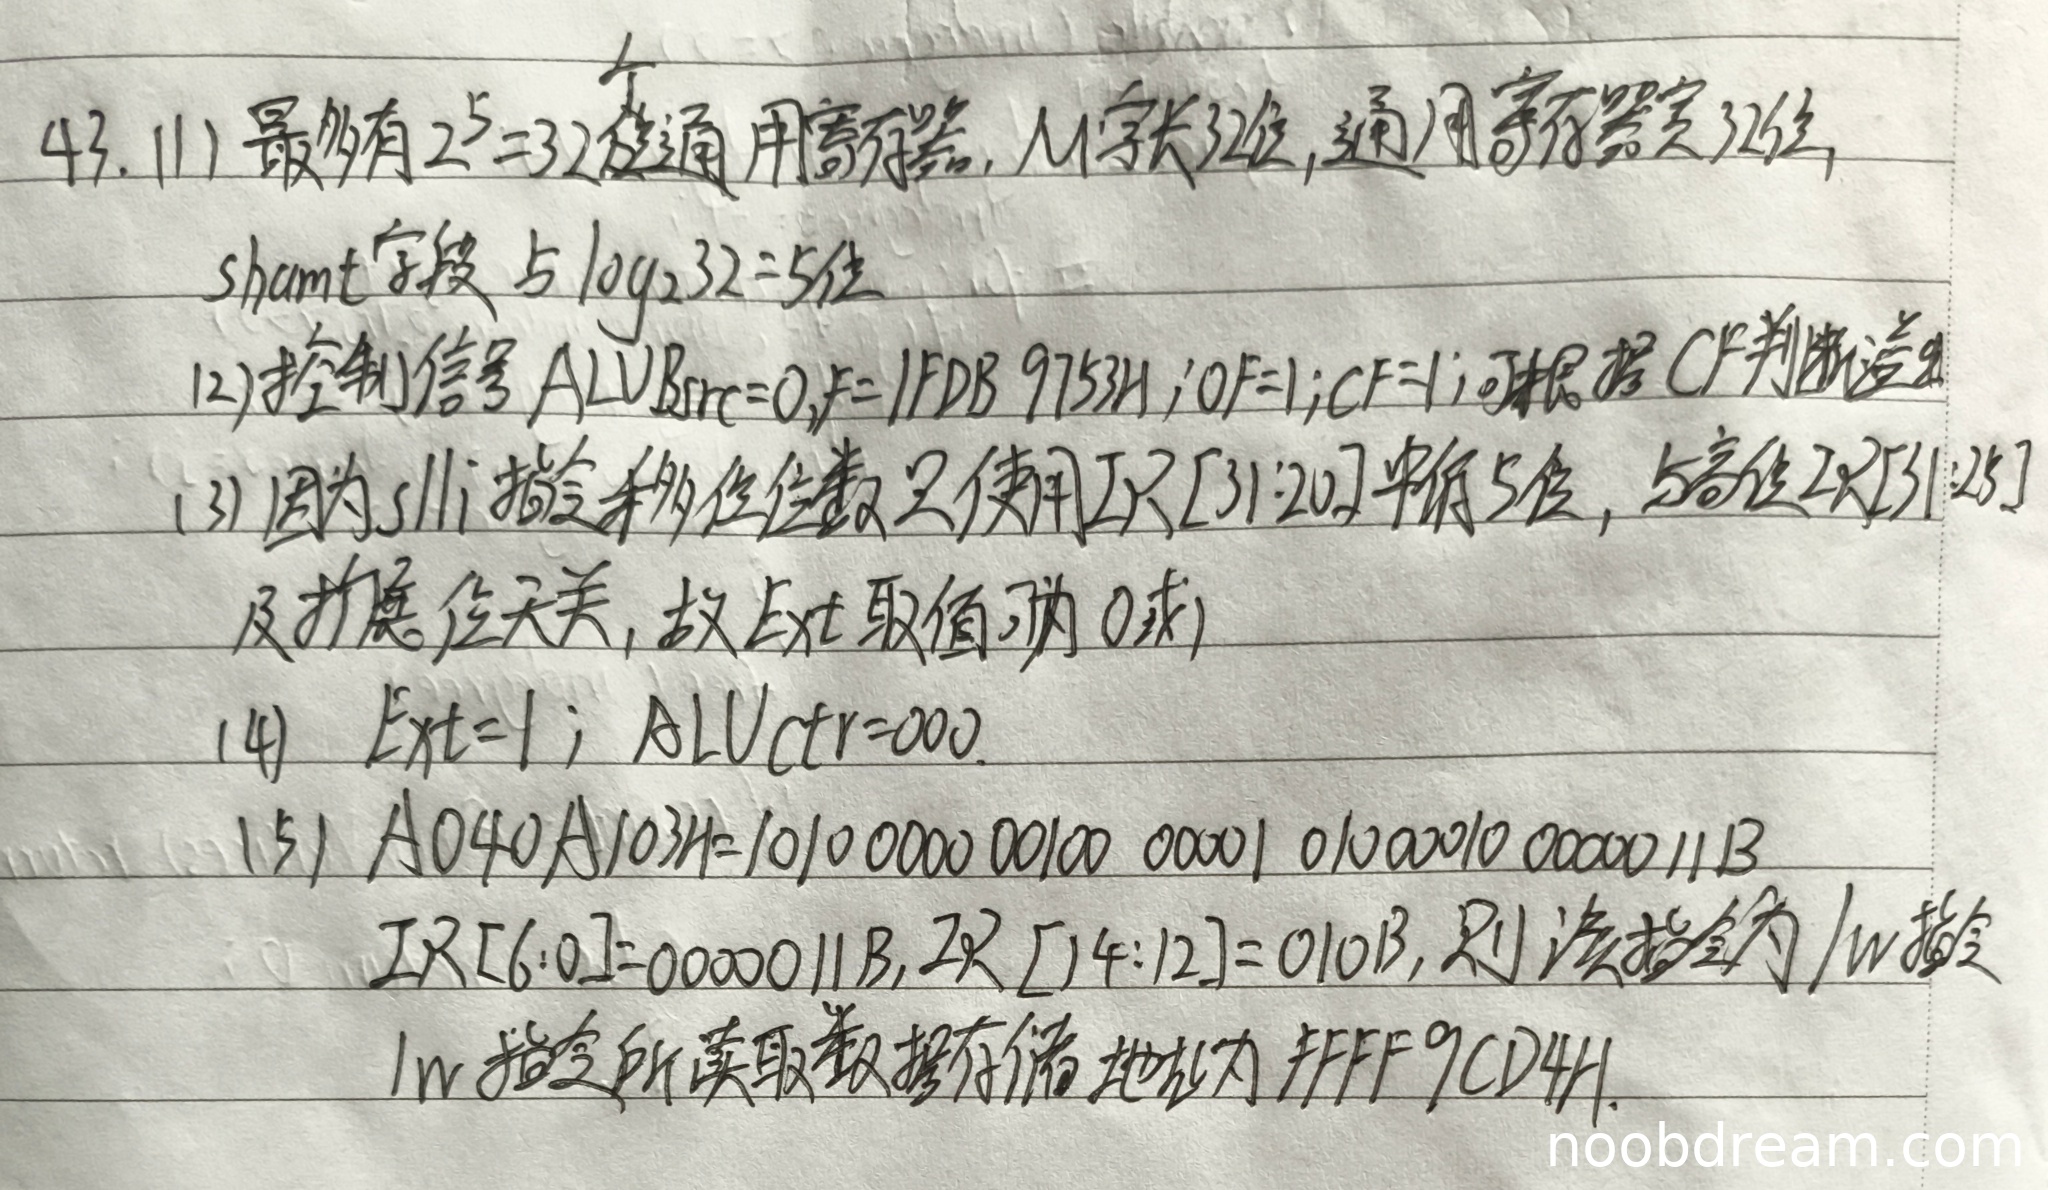 43. (1) 最多有 2^5=32个通用寄存器. M字长32位, 通用寄存器宽32位,
shamt字段占 log₂32=5位
(2) 控制信号 ALUBsrc=0, F=1FDB 9753H; OF=1; CF=1; 可根据 CF判断溢出
(3) 因为slli指令移位位数只使用IR[31:20]中低5位, 与高位IR[31:25]
及扩展位无关, 故Ext取值可为 0或1
(4) Ext=1; ALUctr=000.
(5) A040A103H=1010 0000 00100 00001 01000010 0000011B
IR[6:0]=0000011B, IR[14:12]=010B, 则该指令为lw指令
lw指令所读取数据存储地址为 FFFF 9CD4H.
noobdream.com